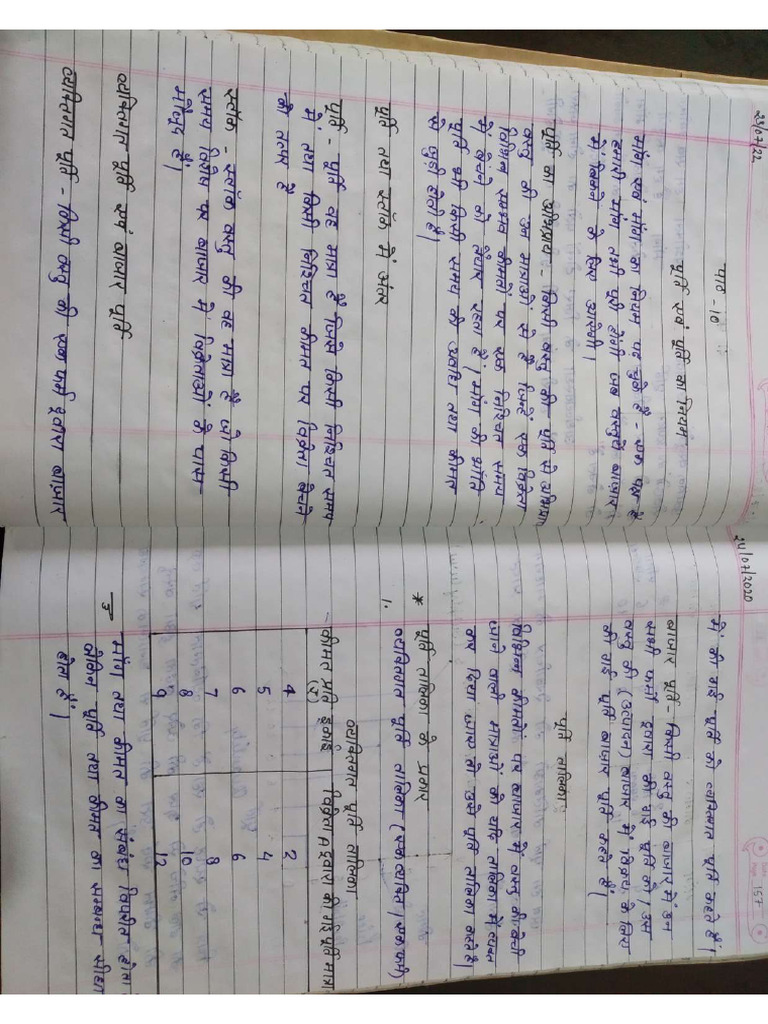 23/07/22
पाठ - 10
पूर्ति एवं पूर्ति का नियम
माँग एवं माँग का नियम पढ़ चुके हैं - एक पक्ष है
हमारी माँग तभी पूरी होगी जब वस्तुएँ बाजार
में बिकने के लिए आएंगी।
पूर्ति का अभिप्राय - किसी वस्तु की पूर्ति से अभिप्राय
वस्तु की उन मात्राओं से है जिन्हें एक विक्रेता
विभिन्न सम्भव कीमतों पर एक निश्चित समय
में बेचने को तैयार रहता है। माँग की भांति
पूर्ति भी किसी समय की अवधि तथा कीमत
से जुड़ी होती है।
पूर्ति तथा स्टॉक में अंतर
पूर्ति - पूर्ति वह मात्रा है जिसे किसी निश्चित समय
में तथा किसी निश्चित कीमत पर विक्रेता बेचने
को तत्पर है
स्टॉक - स्टॉक वस्तु की वह मात्रा है जो किसी
समय विशेष पर बाजार में विक्रेताओं के पास
मौजूद है।
व्यक्तिगत पूर्ति एवं बाजार पूर्ति
व्यक्तिगत पूर्ति - किसी वस्तु की एक फर्म द्वारा बाजार
24/07/2020
157
में की गई पूर्ति को व्यक्तिगत पूर्ति कहते हैं।
बाजार पूर्ति - किसी वस्तु की बाजार में उन
सभी फर्मों द्वारा की गई पूर्ति को, उस
वस्तु की (उत्पादन) बाजार में विक्रय के लिए
की गई पूर्ति बाजार पूर्ति कहते हैं।
पूर्ति तालिका
विभिन्न कीमतों पर बाजार में वस्तु की बेची
जाने वाली मात्राओं को यदि तालिका में व्यक्त
कर दिया जाए तो उसे पूर्ति तालिका कहते हैं।
* पूर्ति तालिका के प्रकार
1. व्यक्तिगत पूर्ति तालिका (एक व्यक्ति, एक फर्म)
व्यक्तिगत पूर्ति तालिका
कीमत प्रति इकाई (₹) विक्रेता A द्वारा की गई पूर्ति मात्रा
4 2
5 4
6 6
7 8
8 10
9 12
उ माँग तथा कीमत का संबंध विपरीत होता
लेकिन पूर्ति तथा कीमत का सम्बन्ध सीधा
होता है।